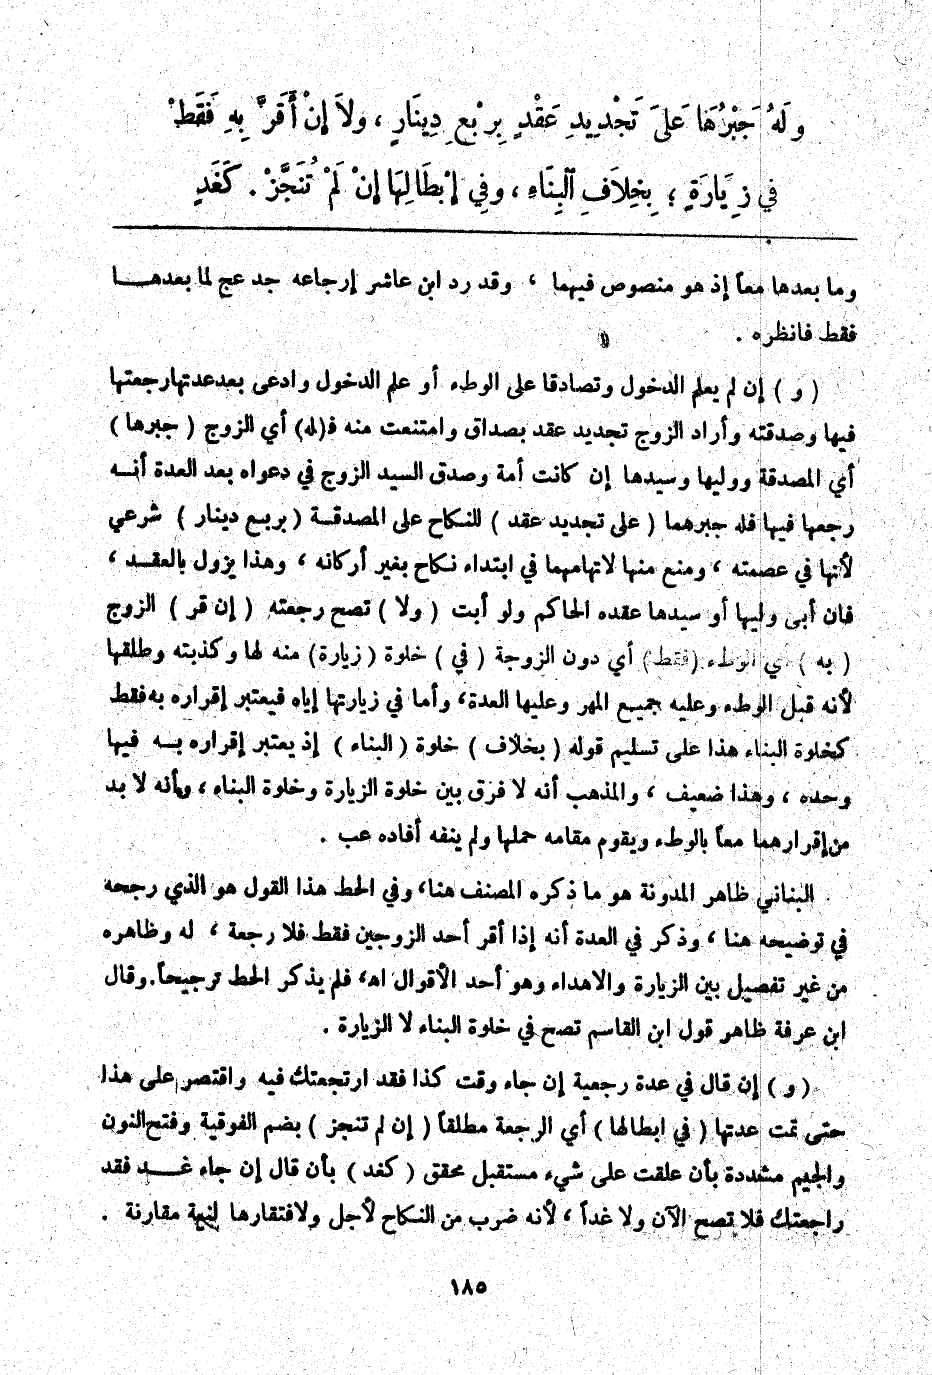 وَلَهُ جَبْرُهَا عَلَى تَجْدِيدِ عَقْدٍ بِرُبْعِ دِينَارٍ ، ولاَ إِنْ أَقَرَّ بِهِ فَقَطْ
في زِيَارَةٍ ؛ بِخِلاَفِ الْبِنَاءِ ، وفِي إبْطَالِهَا إنْ لَمْ تُنَجَّزْ . كَغَدٍ
وما بعدها معاً إذ هو منصوص فيهما ، وقد رد ابن عاشر إرجاعه جد عج لما بعدهـــا
فقط فانظره .
( و ) إن لم يعلم الدخول وتصادقا على الوطء أو علم الدخول وادعى بعدعدتهارجعتها
فيها وصدقته وأراد الزوج تجديد عقد بصداق وامتنعت منه فـ(له) أي الزوج ( جبرها )
أي المصدقة ووليها وسيدها إن كانت أمة وصدق السيد الزوج في دعواه بعد العدة أنــه
رجعها فيها فله جبرهما ( على تجديد عقد ) للنكاح على المصدقــة ( بربـع دينار ) شرعي
لأنها في عصمته ، ومنع منها لاتهامهما في ابتداء نكاح بغير أركانه ، وهذا يزول بالعقــد ،
فان أبى وليها أو سيدها عقده الحاكم ولو أبت ( ولا ) تصح رجعته ( إن قر ) الزوج
( به ) أي الوطء (فقط) أي دون الزوجة ( في ) خلوة ( زيارة) منه لها وكذبته وطلقها
لأنه قبل الوطء وعليه جميـع المهر وعليها العدة، وأما في زيارتها إياه فيعتبر إقراره به فقط
كخلوة البناء هذا على تسليم قوله ( بخلاف ) خلوة ( البناء ) إذ يعتبر إقراره بــه فيها
وحده ، وهذا ضعيف ، والمذهب أنه لا فرق بين خلوة الزيارة وخلوة البناء ، وأنه لا بد
من إقرارهما معاً بالوطء ويقوم مقامه حملها ولم ينفه أفاده عب .
البناني ظاهر المدونة هو ما ذكره المصنف هنا، وفي الحط هذا القول هو الذي رجحه
في توضيحه هنا ، وذكر في العدة أنه إذا أقر أحد الزوجين فقط فلا رجعة ، له وظاهره
من غير تفصيل بين الزيارة والاهداء وهو أحد الأقوال اه، فلم يذكر الحط ترجيحاً.وقال
ابن عرفة ظاهر قول ابن القاسم تصح في خلوة البناء لا الزيارة .
( و ) إن قال في عدة رجعية إن جاء وقت كذا فقد ارتجعتك فيه واقتصر على هذا
حتى تمت عدتها ( في ابطالها ) أي الرجعة مطلقاً ( إن لم تنجز ) بضم الفوقية وفتح النون
والجيم مشددة بأن علقت على شيء مستقبل محقق ( كغد ) بأن قال إن جاء غــــد فقد
راجعتك فلا تصح الآن ولا غداً ، لأنه ضرب من النكاح لأجل ولافتقارها لنية مقارنة .
١٨٥